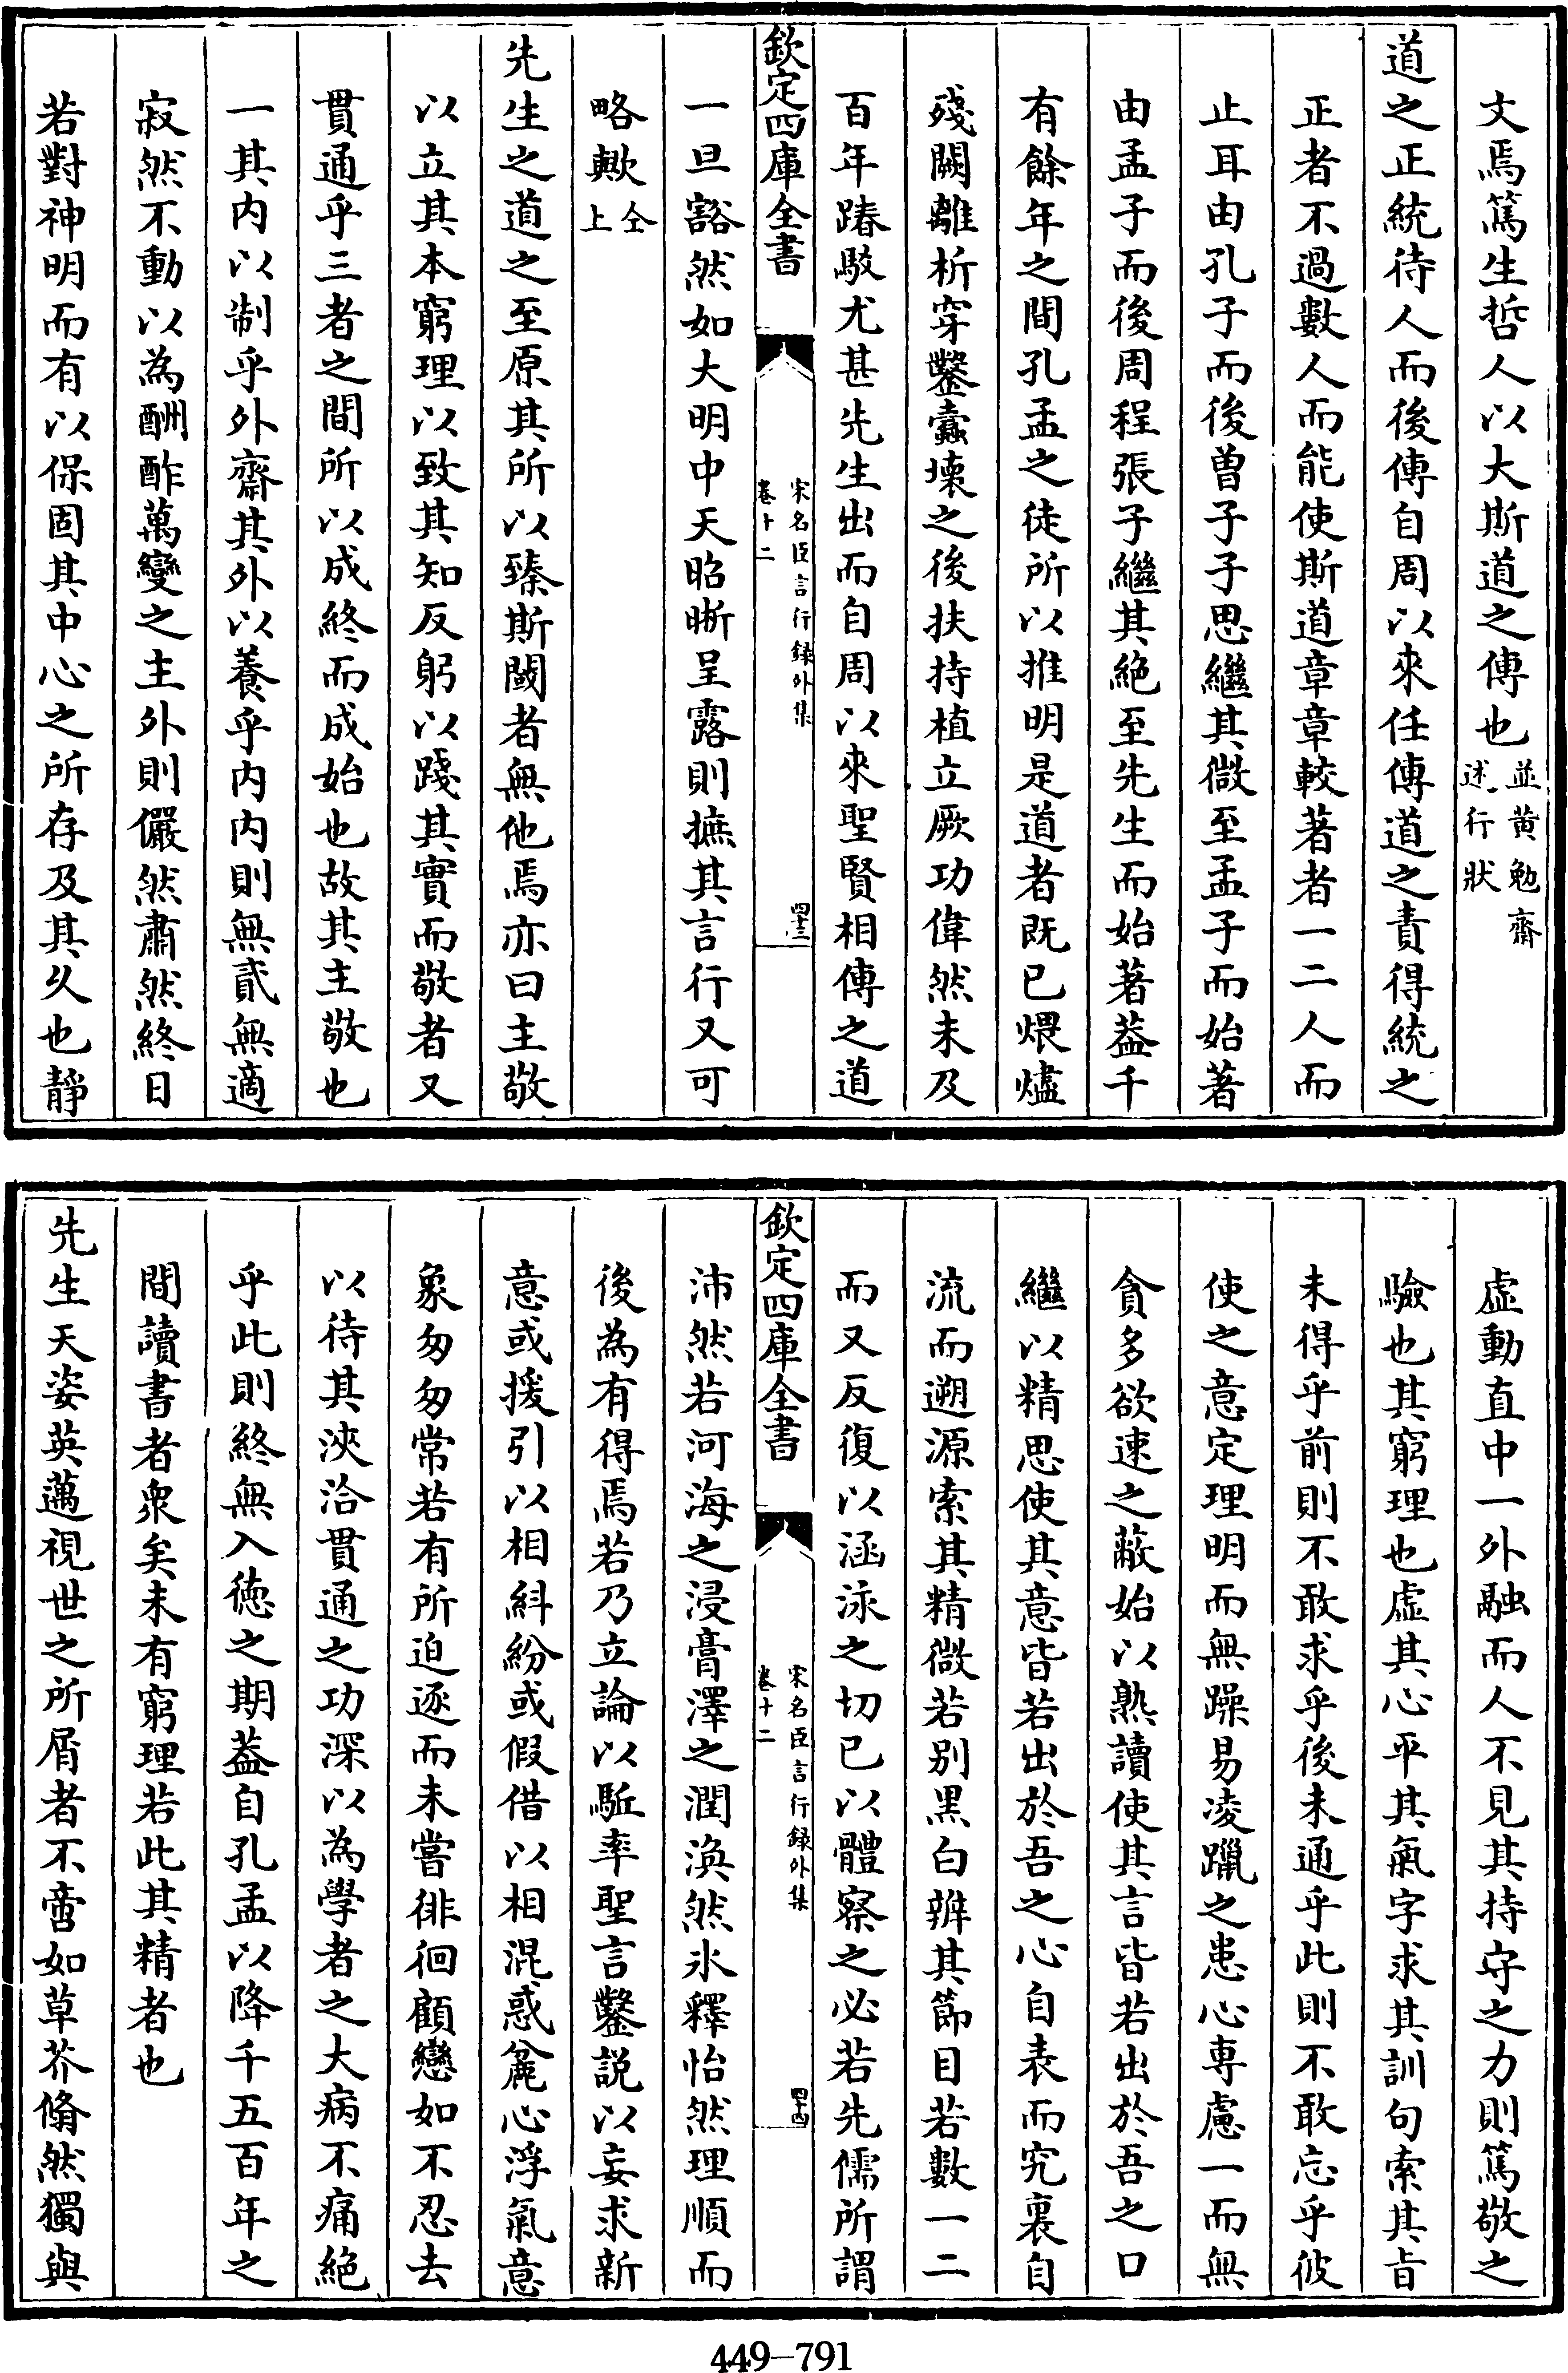 文焉篤生哲人以大斯道之傳也並黄勉齋述行狀
道之正統待人而後傳自周以來任傳道之責得統之
正者不過數人而能使斯道章章較著者一二人而
止耳由孔子而後曾子子思繼其微至孟子而始著
由孟子而後周程張子繼其絶至先生而始著葢千
有餘年之間孔孟之徒所以推明是道者既已煨燼
殘闕離析穿鑿蠧壊之後扶持植立厥功偉然未及
百年踳駁尤甚先生出而自周以來聖賢相傳之道
欽定四庫全書
宋名臣言行録外集
卷十二
四十三
一旦豁然如大明中天昭晰呈露則摭其言行又可
略歟仝上
先生之道之至原其所以臻斯閾者無他焉亦曰主敬
以立其本窮理以致其知反躬以踐其實而敬者又
貫通乎三者之間所以成終而成始也故其主敬也
一其内以制乎外齋其外以養乎内内則無貳無適
寂然不動以為酬酢萬變之主外則儼然肅然終日
若對神明而有以保固其中心之所存及其久也靜
虚動直中一外融而人不見其持守之力則篤敬之
驗也其窮理也虚其心平其氣字求其訓句索其旨
未得乎前則不敢求乎後未通乎此則不敢忘乎彼
使之意定理明而無躁易凌躐之患心専慮一而無
貪多欲速之蔽始以熟讀使其言皆若出於吾之口
繼以精思使其意皆若出於吾之心自表而究裏自
流而遡源索其精微若别黒白辨其節目若數一二
而又反復以涵泳之切已以體察之必若先儒所謂
欽定四庫全書
宋名臣言行録外集
卷十二
四十四
沛然若河海之浸膏澤之潤渙然氷釋怡然理順而
後為有得焉若乃立論以駈率聖言鑿説以妄求新
意或援引以相紏紛或假借以相混惑麄心浮氣意
象匆匆常若有所迫逐而未嘗徘徊顧戀如不忍去
以待其浹洽貫通之功深以為學者之大病不痛絶
乎此則終無入徳之期葢自孔孟以降千五百年之
間讀書者衆矣未有窮理若此其精者也
先生天姿英邁視世之所屑者不啻如草芥翛然獨與
449-791